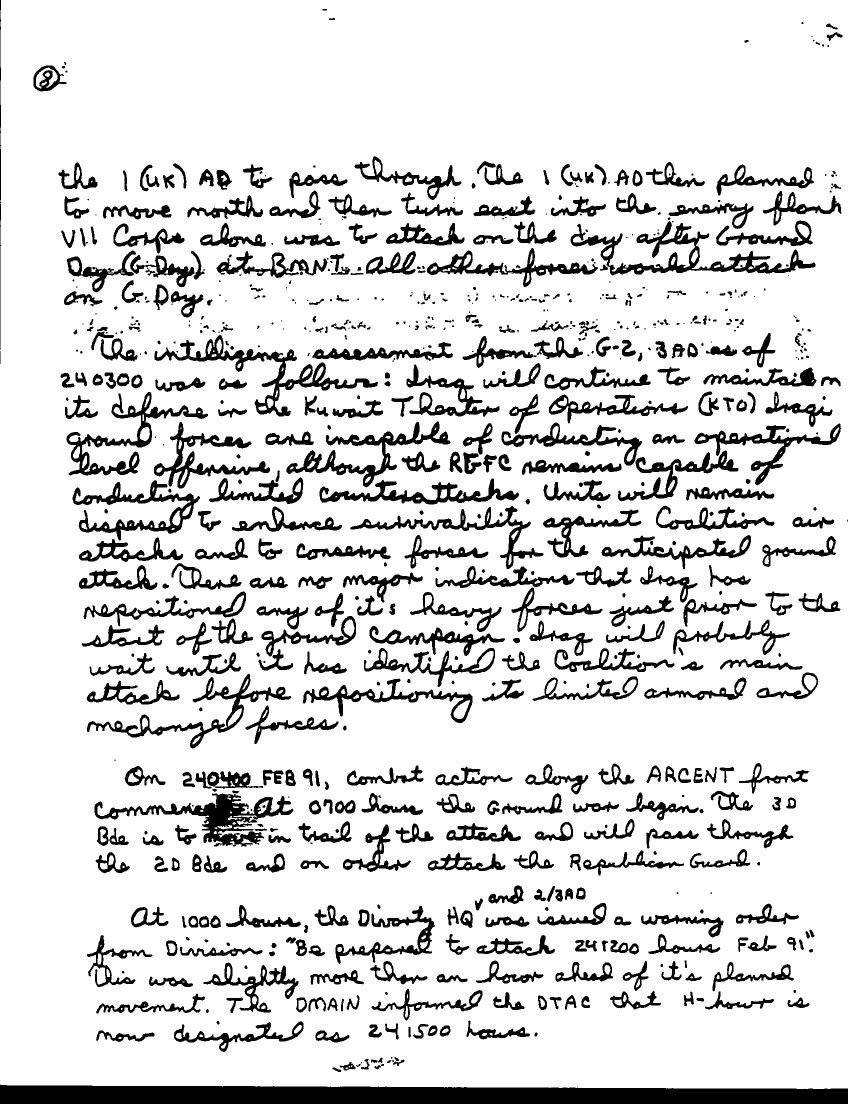 8
the 1 (UK) AD to pass through. The 1 (UK) AD then planned
to move north and then turn east into the enemy flank
VII Corps alone was to attack on the day after Ground
Day (G Day) at BMNT. All other forces would attack
on G Day.
The intelligence assessment from the G-2, 3AD as of
240300 was as follows: Iraq will continue to maintain
its defense in the Kuwait Theater of Operations (KTO) Iraqi
ground forces are incapable of conducting an operational
level offensive, although the RGFC remains capable of
conducting limited counterattacks. Units will remain
dispersed to enhance survivability against Coalition air
attacks and to conserve forces for the anticipated ground
attack. There are no major indications that Iraq has
repositioned any of it's heavy forces just prior to the
start of the ground campaign. Iraq will probably
wait until it has identified the Coalition's main
attack before repositioning its limited armored and
mechanized forces.
On 240400 FEB 91, combat action along the ARCENT front
commenced At 0700 hours the Ground war began. The 3D
Bde is to move in trail of the attack and will pass through
the 2D Bde and on order attack the Republican Guard.
and 2/3AD
At 1000 hours, the Divarty HQ was issued a warning order
from Division: "Be prepared to attack 241200 hours Feb 91".
This was slightly more than an hour ahead of it's planned
movement. The DMAIN informed the DTAC that H-hour is
now designated as 241500 hours.